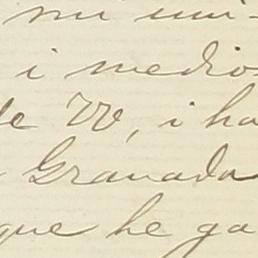 mi uni-
i medios
de VV, i ha
Granada
que he ga